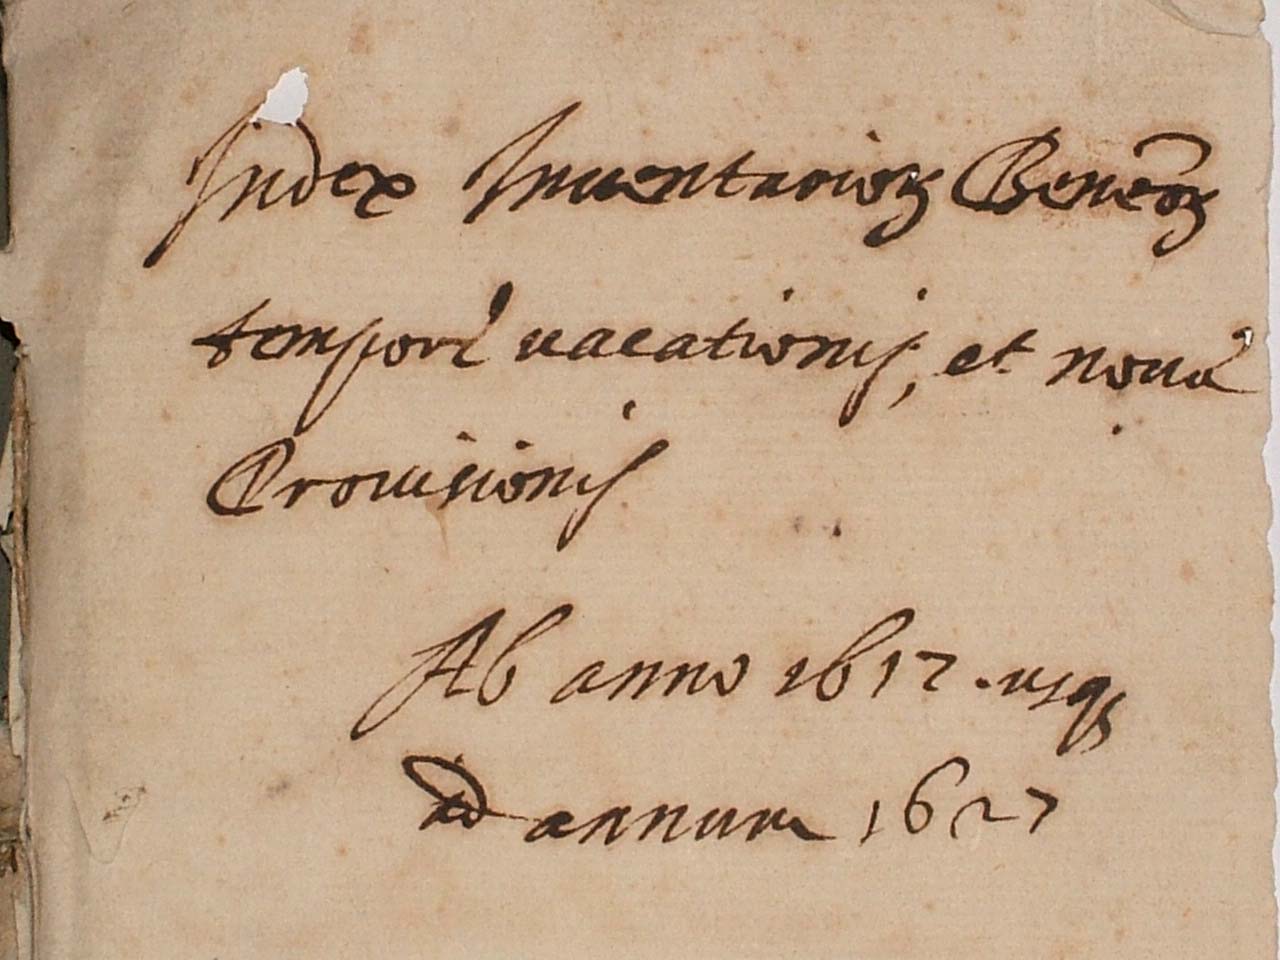 Index Inuentarioꝝ Beneōꝝ
tempore uacationis, et nouæ
Prouisionis
Ab anno 1617 . usqꝫ
ad annum 1627